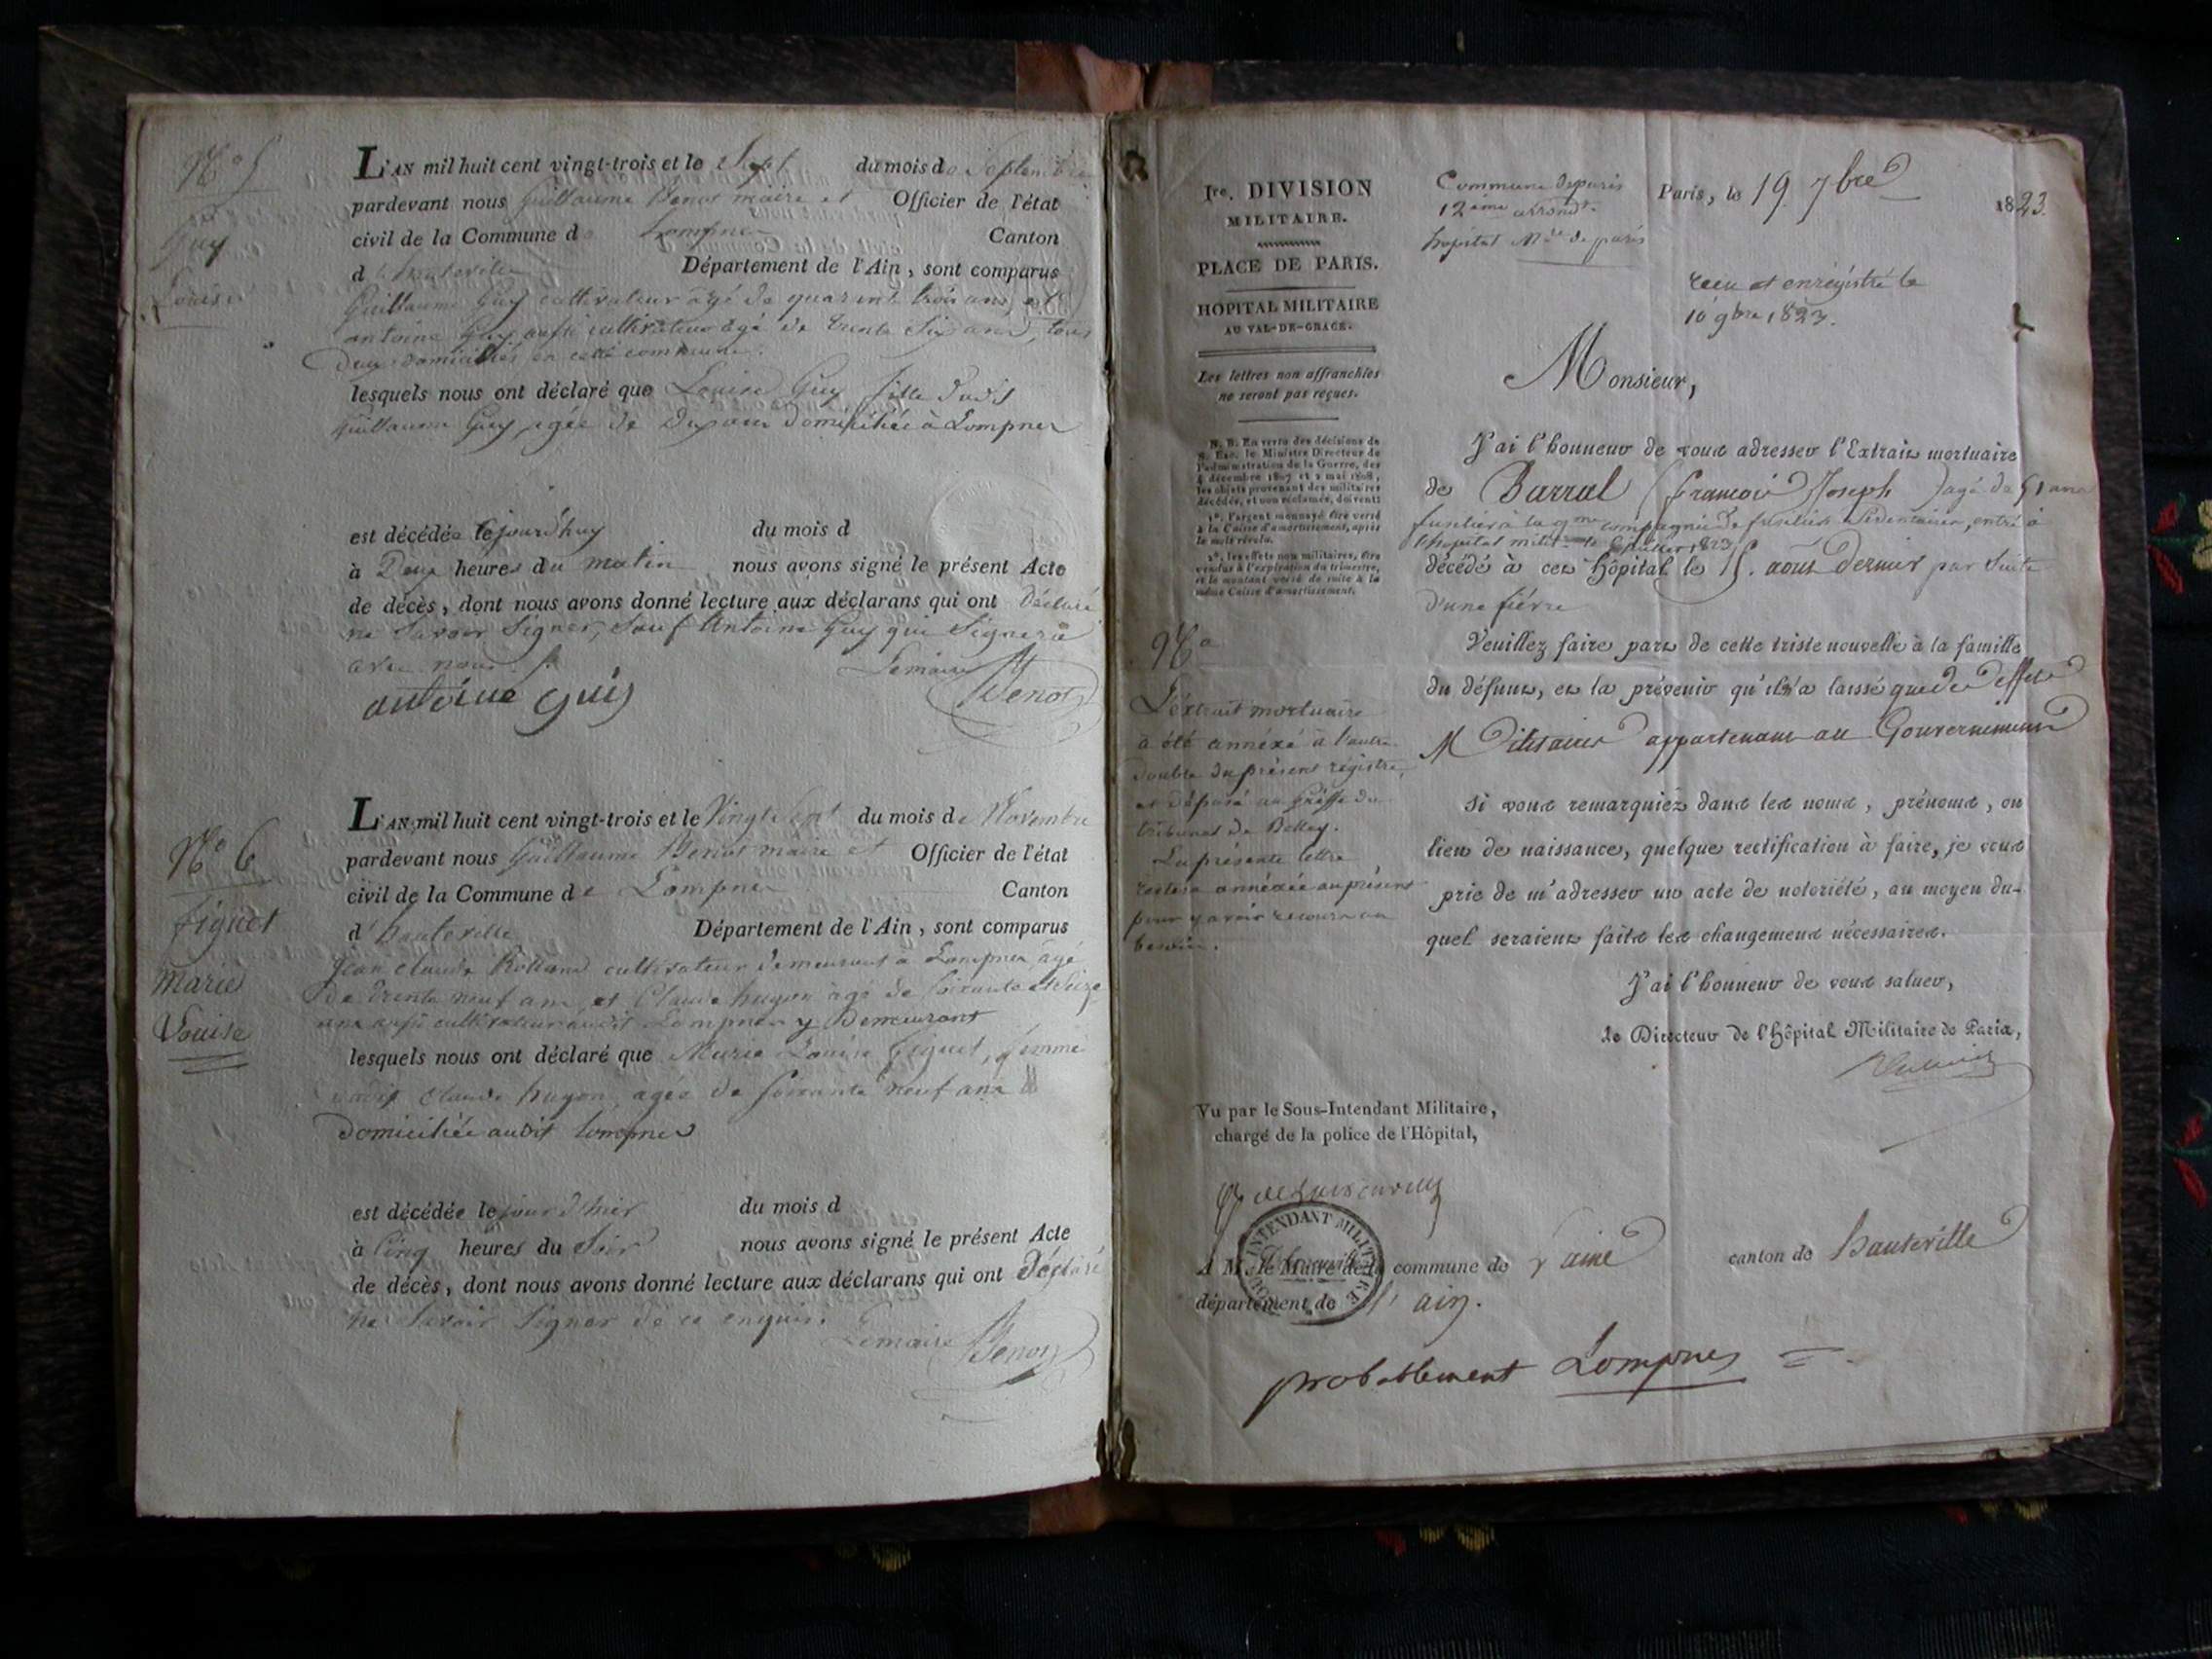 N.o 5
Guy
Louise
L'AN mil huit cent vingt-trois et le Sept du mois de Septembre
pardevant nous Guillaume Benot maire et Officier de l'état
civil de la Commune de Lompnes Canton
d'hauteville Département de l'Ain, sont comparus
Guillaume Guy cultivateur âgé de quarante trois ans, et
antoine Guy aussi cultivateur âgé de trente Six ans, tous
deux domiciliés en cette commune.
lesquels nous ont déclaré que Louise Guy fille dudit
Guillaume Guy, agée de ans domiciliée à Lompnes
est décédée cejourd'huy du mois d
à Deux heures du matin nous avons signé le présent Acte
de décès, dont nous avons donné lecture aux déclarans qui ont Déclaré
ne Savoir Signer, Sauf Antoine Guy qui Signera
avec nous
antoine guis Lemaire Benot
N.o 6
figuet
Marie
Louise
L'AN mil huit cent vingt-trois et le Vingt Sept du mois de Novembre
pardevant nous Guillaume Benot maire et Officier de l'état
civil de la Commune de Lompnes Canton
d'hauteville Département de l'Ain, sont comparus
Jean Claude Rolland cultivateur demeurant à Lompnes, âgé
de trente neuf ans, et Claude hugon âgé de soixante et Seize
ans aussi cultivateur audit Lompnes y Demeurant
lesquels nous ont déclaré que Marie Louise figuet, femme
dudit Claude hugon, agée de soixante neuf ans
domiciliée audit Lompnes
est décédée le jour d'hier du mois d
à Cinq heures du Soir nous avons signé le présent Acte
de décès, dont nous avons donné lecture aux déclarans qui ont Déclaré
ne Savoir Signer de ce enquis.
Lemaire Benot
Ire. DIVISION
MILITAIRE.
PLACE DE PARIS.
HÔPITAL MILITAIRE
AU VAL-DE-GRACE.
Les lettres non affranchies
ne seront pas reçues.
N. B. En vertu des décisions de
S. Exc. le Ministre Directeur de
l'administration de la Guerre, des
4 décembre 1807 et 2 mai 1808,
les objets provenant des militaires
décédés, et non réclamés, doivent:
1°. l'argent monnayé être versé
à la Caisse d'amortissement, après
le mois révolu.
2°. les effets non militaires, être
vendus à l'expiration du trimestre,
et le montant versé de suite à la
même Caisse d'amortissement.
L'extrait mortuaire
a été annéxé à l'autre
double du présent régistre,
et déposé au Greffe du
tribunal de Belley.
La présente lettre
restera annéxée au présent
pour y avoir recours au
besoin.
Commune de paris
12ème arrondt.
hopital Mre de paris
Paris, le 19 7bre 1823.
reçu et enrégistré le
10 9bre 1823.
Monsieur,
J'ai l'honneur de vous adresser l'Extrait mortuaire
de Barral (françois Joseph) agé de 51 ans
fusilier à la 9me compagnie de fusiliers Sédentaires, entré à
l'hopital milit. le juillet 1823
décédé à cet Hôpital le 15. août dernier par Suite
d'une fiévre
Veuillez faire part de cette triste nouvelle à la famille
du défunt, et la prévenir qu'il n'a laissé que des effets
Militaires appartenant au Gouvernement
Si vous remarquiez dans les noms, prénoms, ou
lieu de naissance, quelque rectification à faire, je vous
prie de m'adresser un acte de notoriété, au moyen du-
quel seraient faits les changemens nécessaires.
J'ai l'honneur de vous saluer,
Le Directeur de l'Hôpital Militaire de Paris,
Vu par le Sous-Intendant Militaire,
chargé de la police de l'Hôpital,
INTENDANT MILITAIRE
A M. le Maire de la commune de l'aine canton de hauteville
département de l'ain.
probablement Lompnes